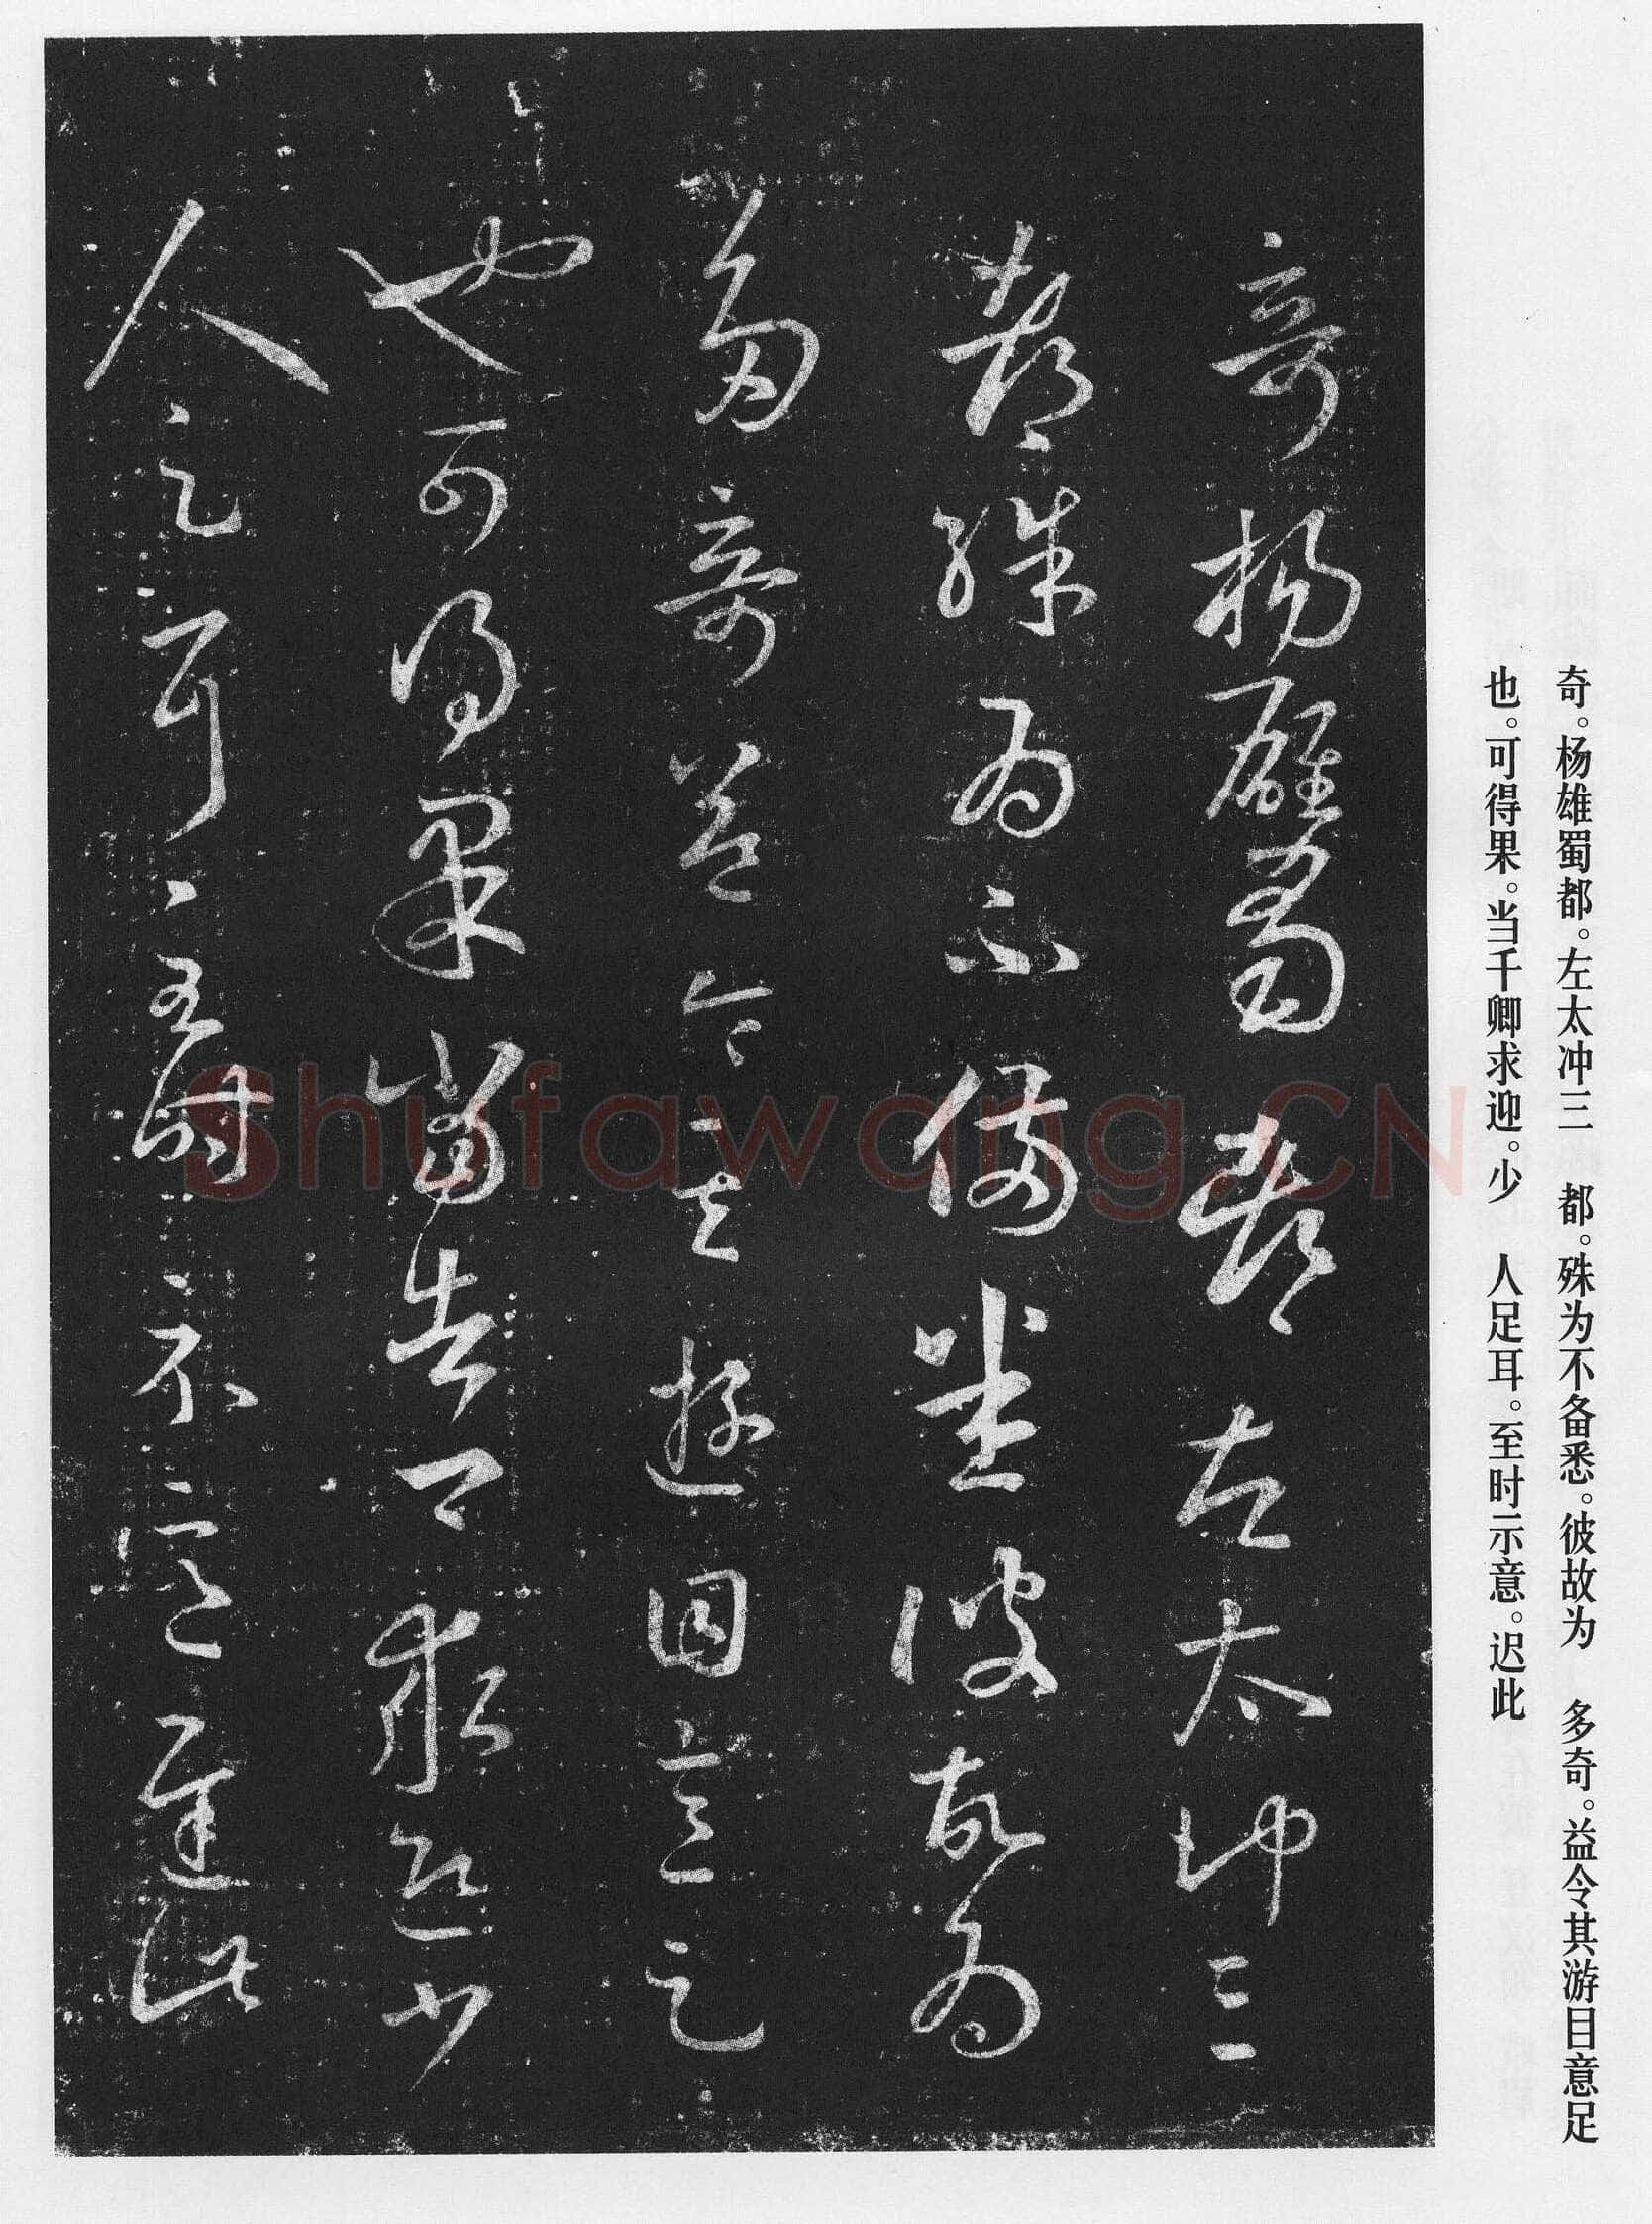 奇。杨雄蜀都。左太冲三 都。殊为不备悉。彼故为 多奇。益令其游目意足
也。可得果。当千卿求迎。少 人足耳。至时示意。迟此
奇杨雄蜀都左太冲三
都殊为不备悉彼故为
多奇益令其游目意足
也可得果当告卿求迎少
人足耳至时示意迟此
Shufawang.CN